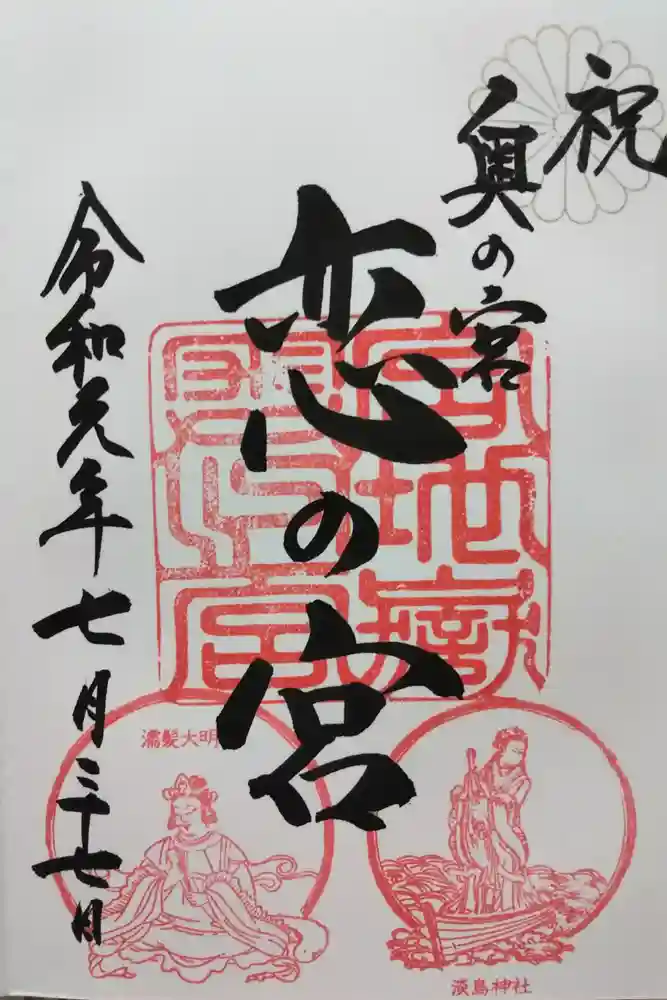 祝
奥の宮
恋の宮
令和元年七月二十七日
宮地嶽
濡髪大明
淡島神社